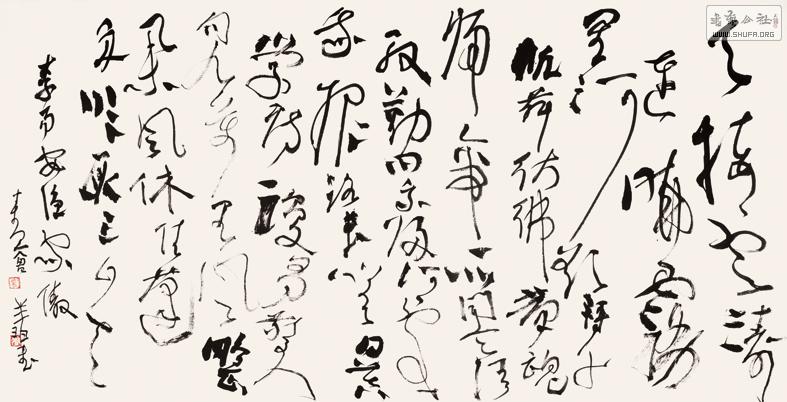 天接雲濤
連曉霧
星河欲轉千
帆舞彷彿夢魂
歸帝所聞天語
殷勤問我歸何處
我報路長嗟日暮
學詩謾有驚人
句九萬里風鵬正
舉風休住蓬
舟吹取三山去
李易安漁家傲
WWW.SHUFA.ORG